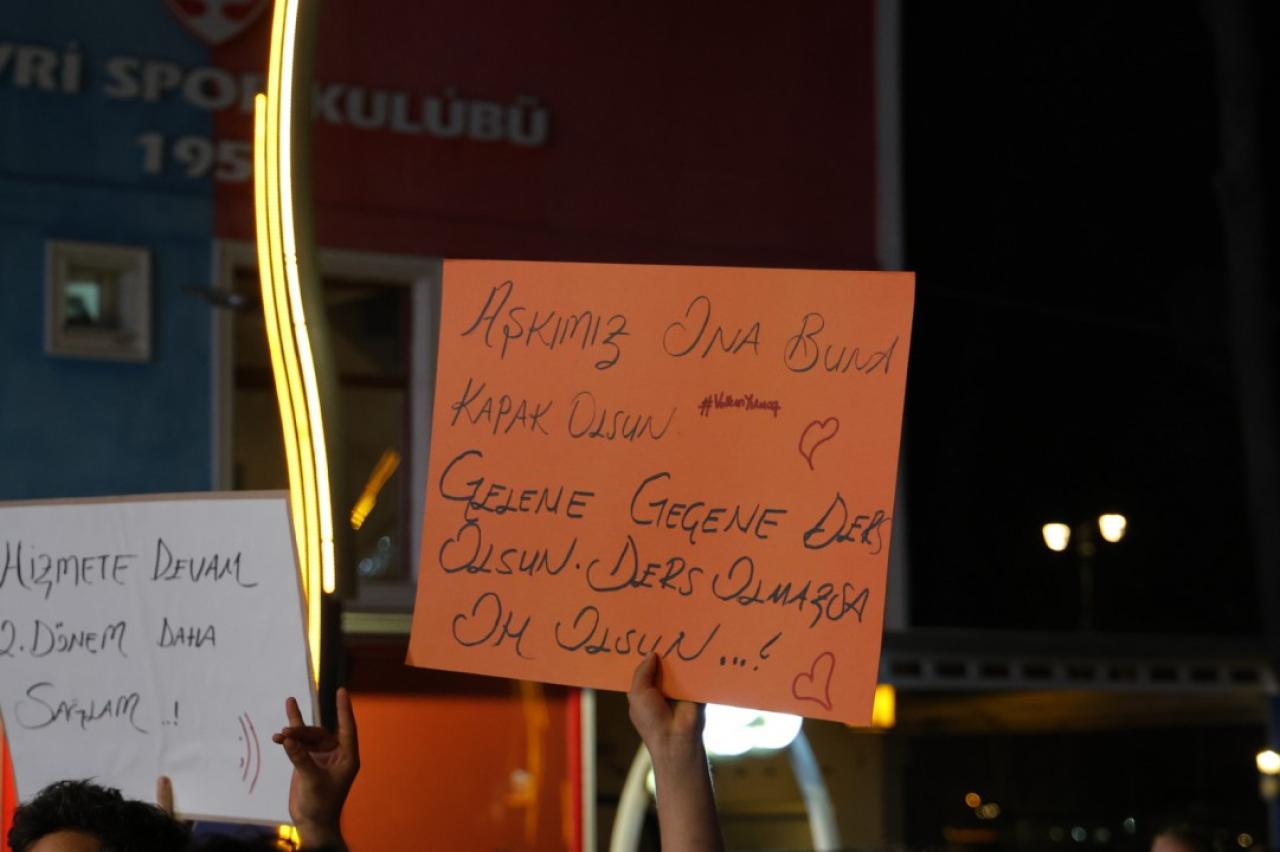 VRİ SPOR KULÜBÜ
195
AŞKIMIZ ONA BUNA
KAPAK OLSUN #VolkanYılmaz
GELENE GEÇENE DERS
OLSUN. DERS OLMAZSA
OH OLSUN...!
HİZMETE DEVAM
2. DÖNEM DAHA
SAĞLAM ..!
:))